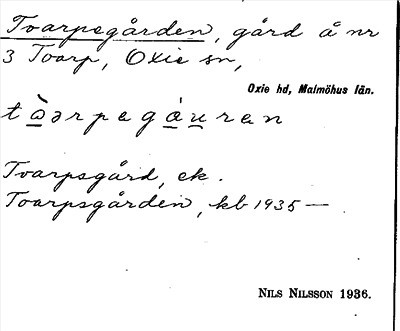 Toarpsgården, gård å nr
3 Toarp, Oxie sn,
Oxie hd, Malmöhus län.
Toarpsgård, ek.
Toarpsgården, kb 1935 —
NILS NILSSON 1936.